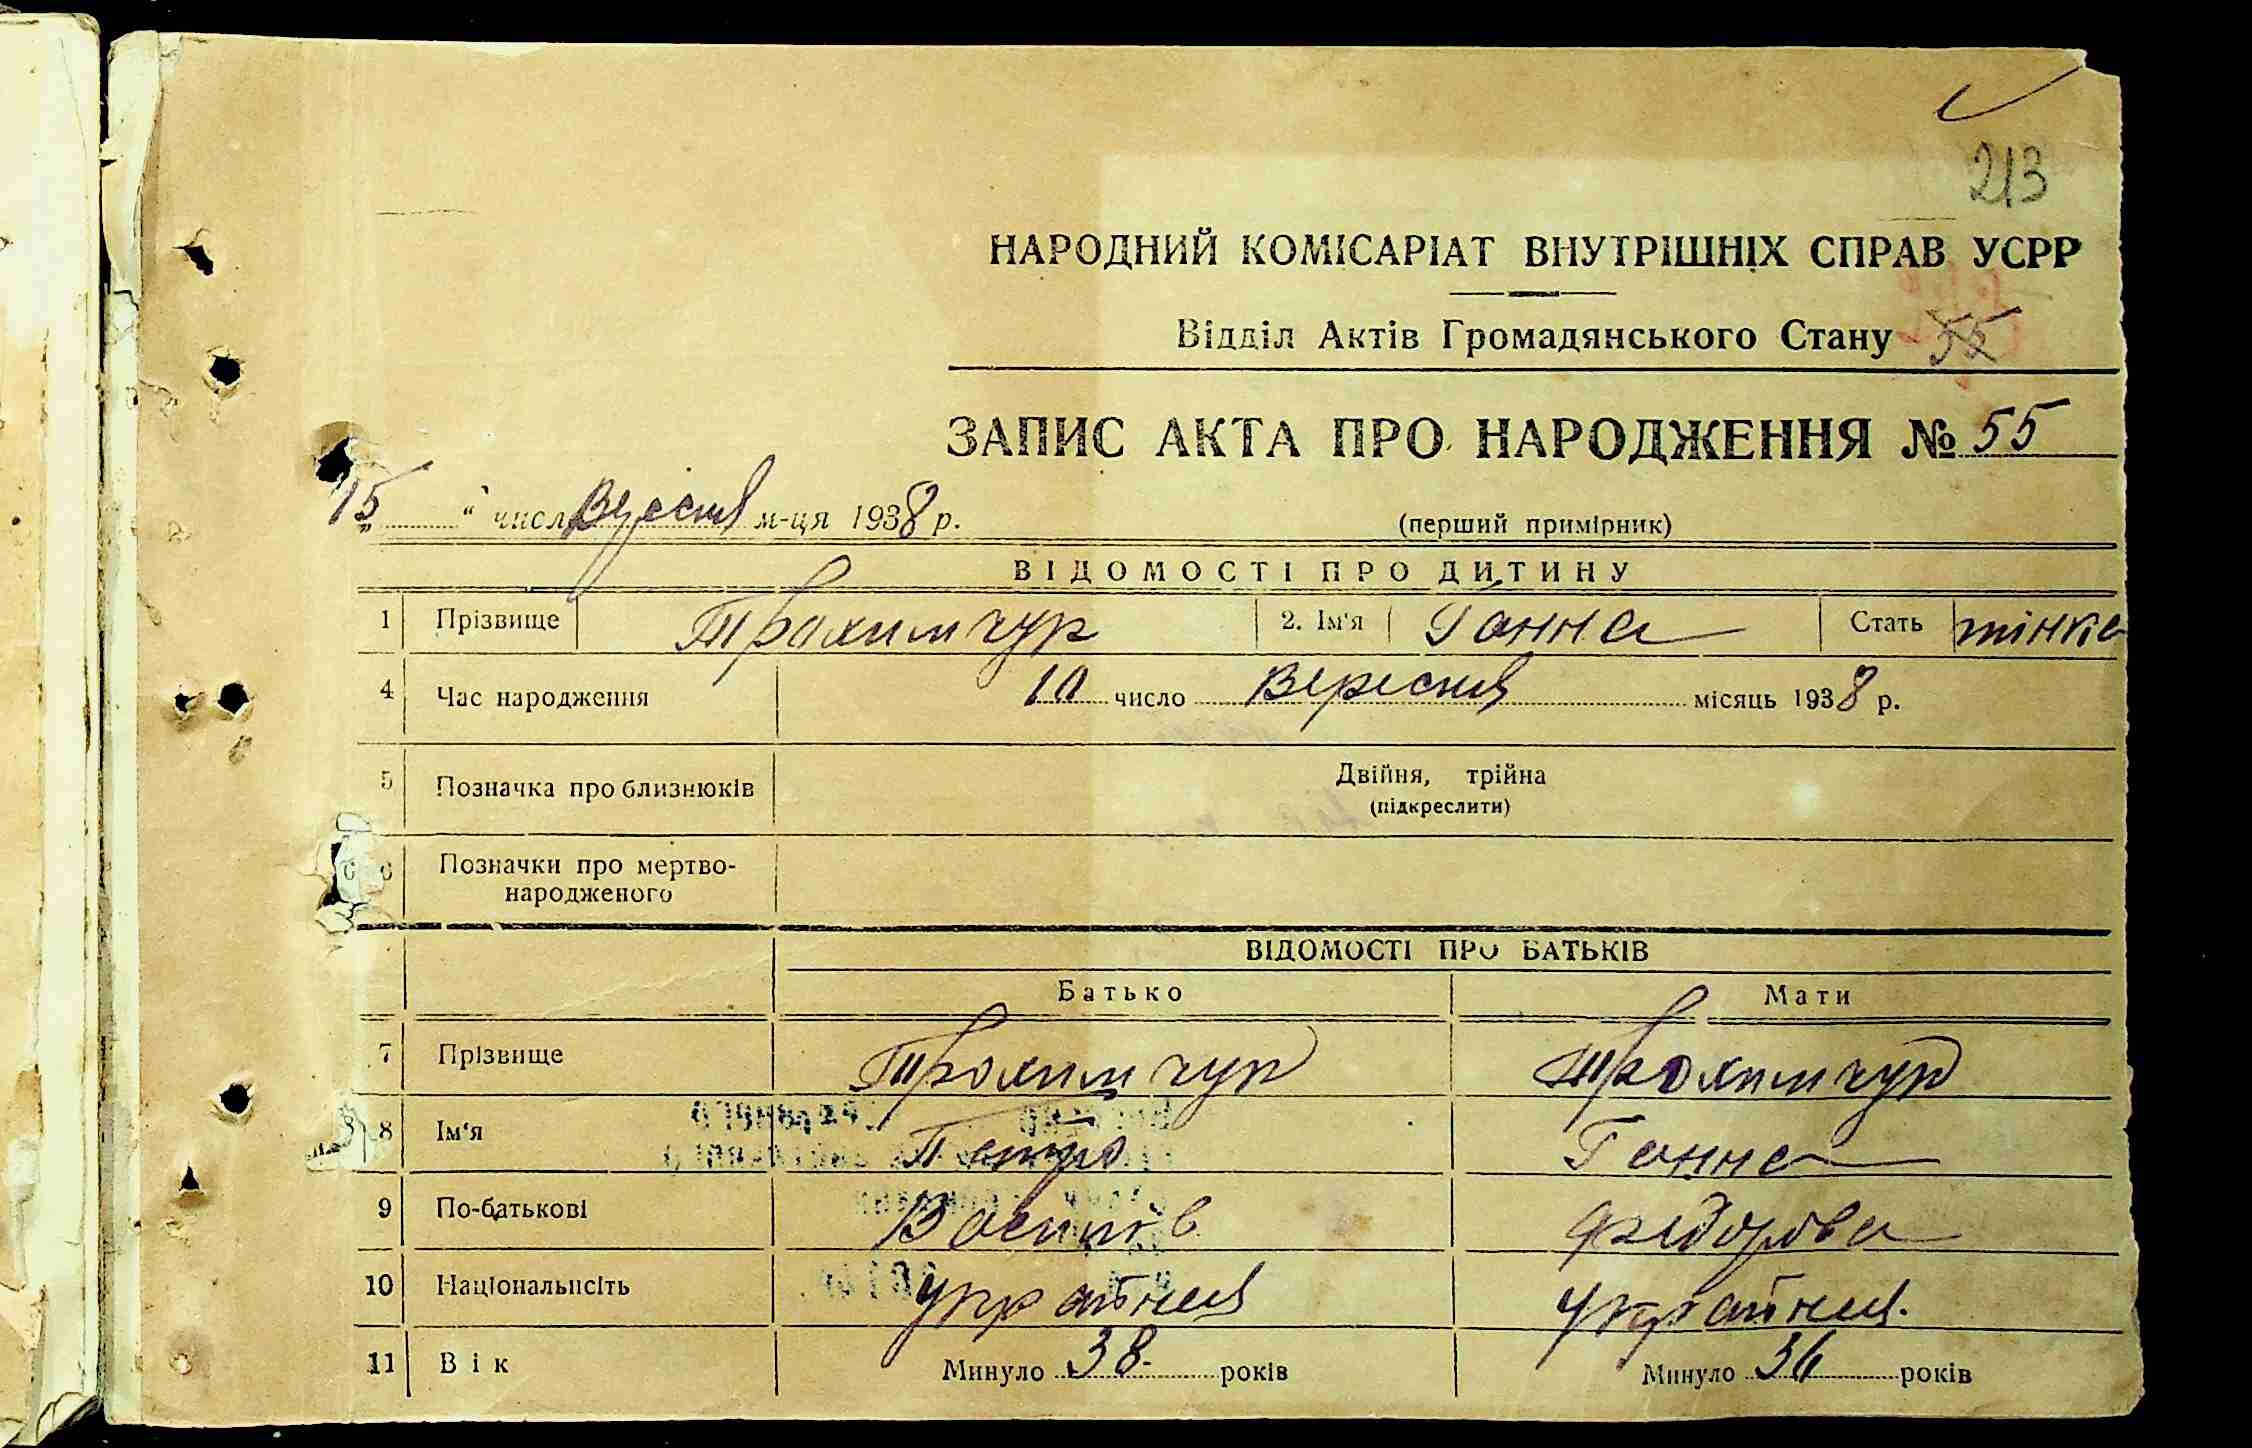 213
НАРОДНИЙ КОМІСАРІАТ ВНУТРІШНІХ СПРАВ УСРР
Відділ Актів Громадянського Стану 55
ЗАПИС АКТА ПРО НАРОДЖЕННЯ № 55
15 " числ Вересня м-ця 1938 р.
(перший примірник)
ВІДОМОСТІ ПРО ДИТИНУ
1 Прізвище Трохимчук 2. Ім'я Ганна Стать жінка
4 Час народження 10 число Вересня місяць 1938 р.
5 Позначка про близнюків Двійня, трійна
(підкреслити)
6 Позначки про мертво-
народженого
ВІДОМОСТІ ПРО БАТЬКІВ
Батько Мати
7 Прізвище Трохимчук Трохимчук
8 Ім'я Петро Ганна
9 По-батькові Васильов Федорова
10 Національність україниця україниця.
11 Вік Минуло 38 років Минуло 36 років